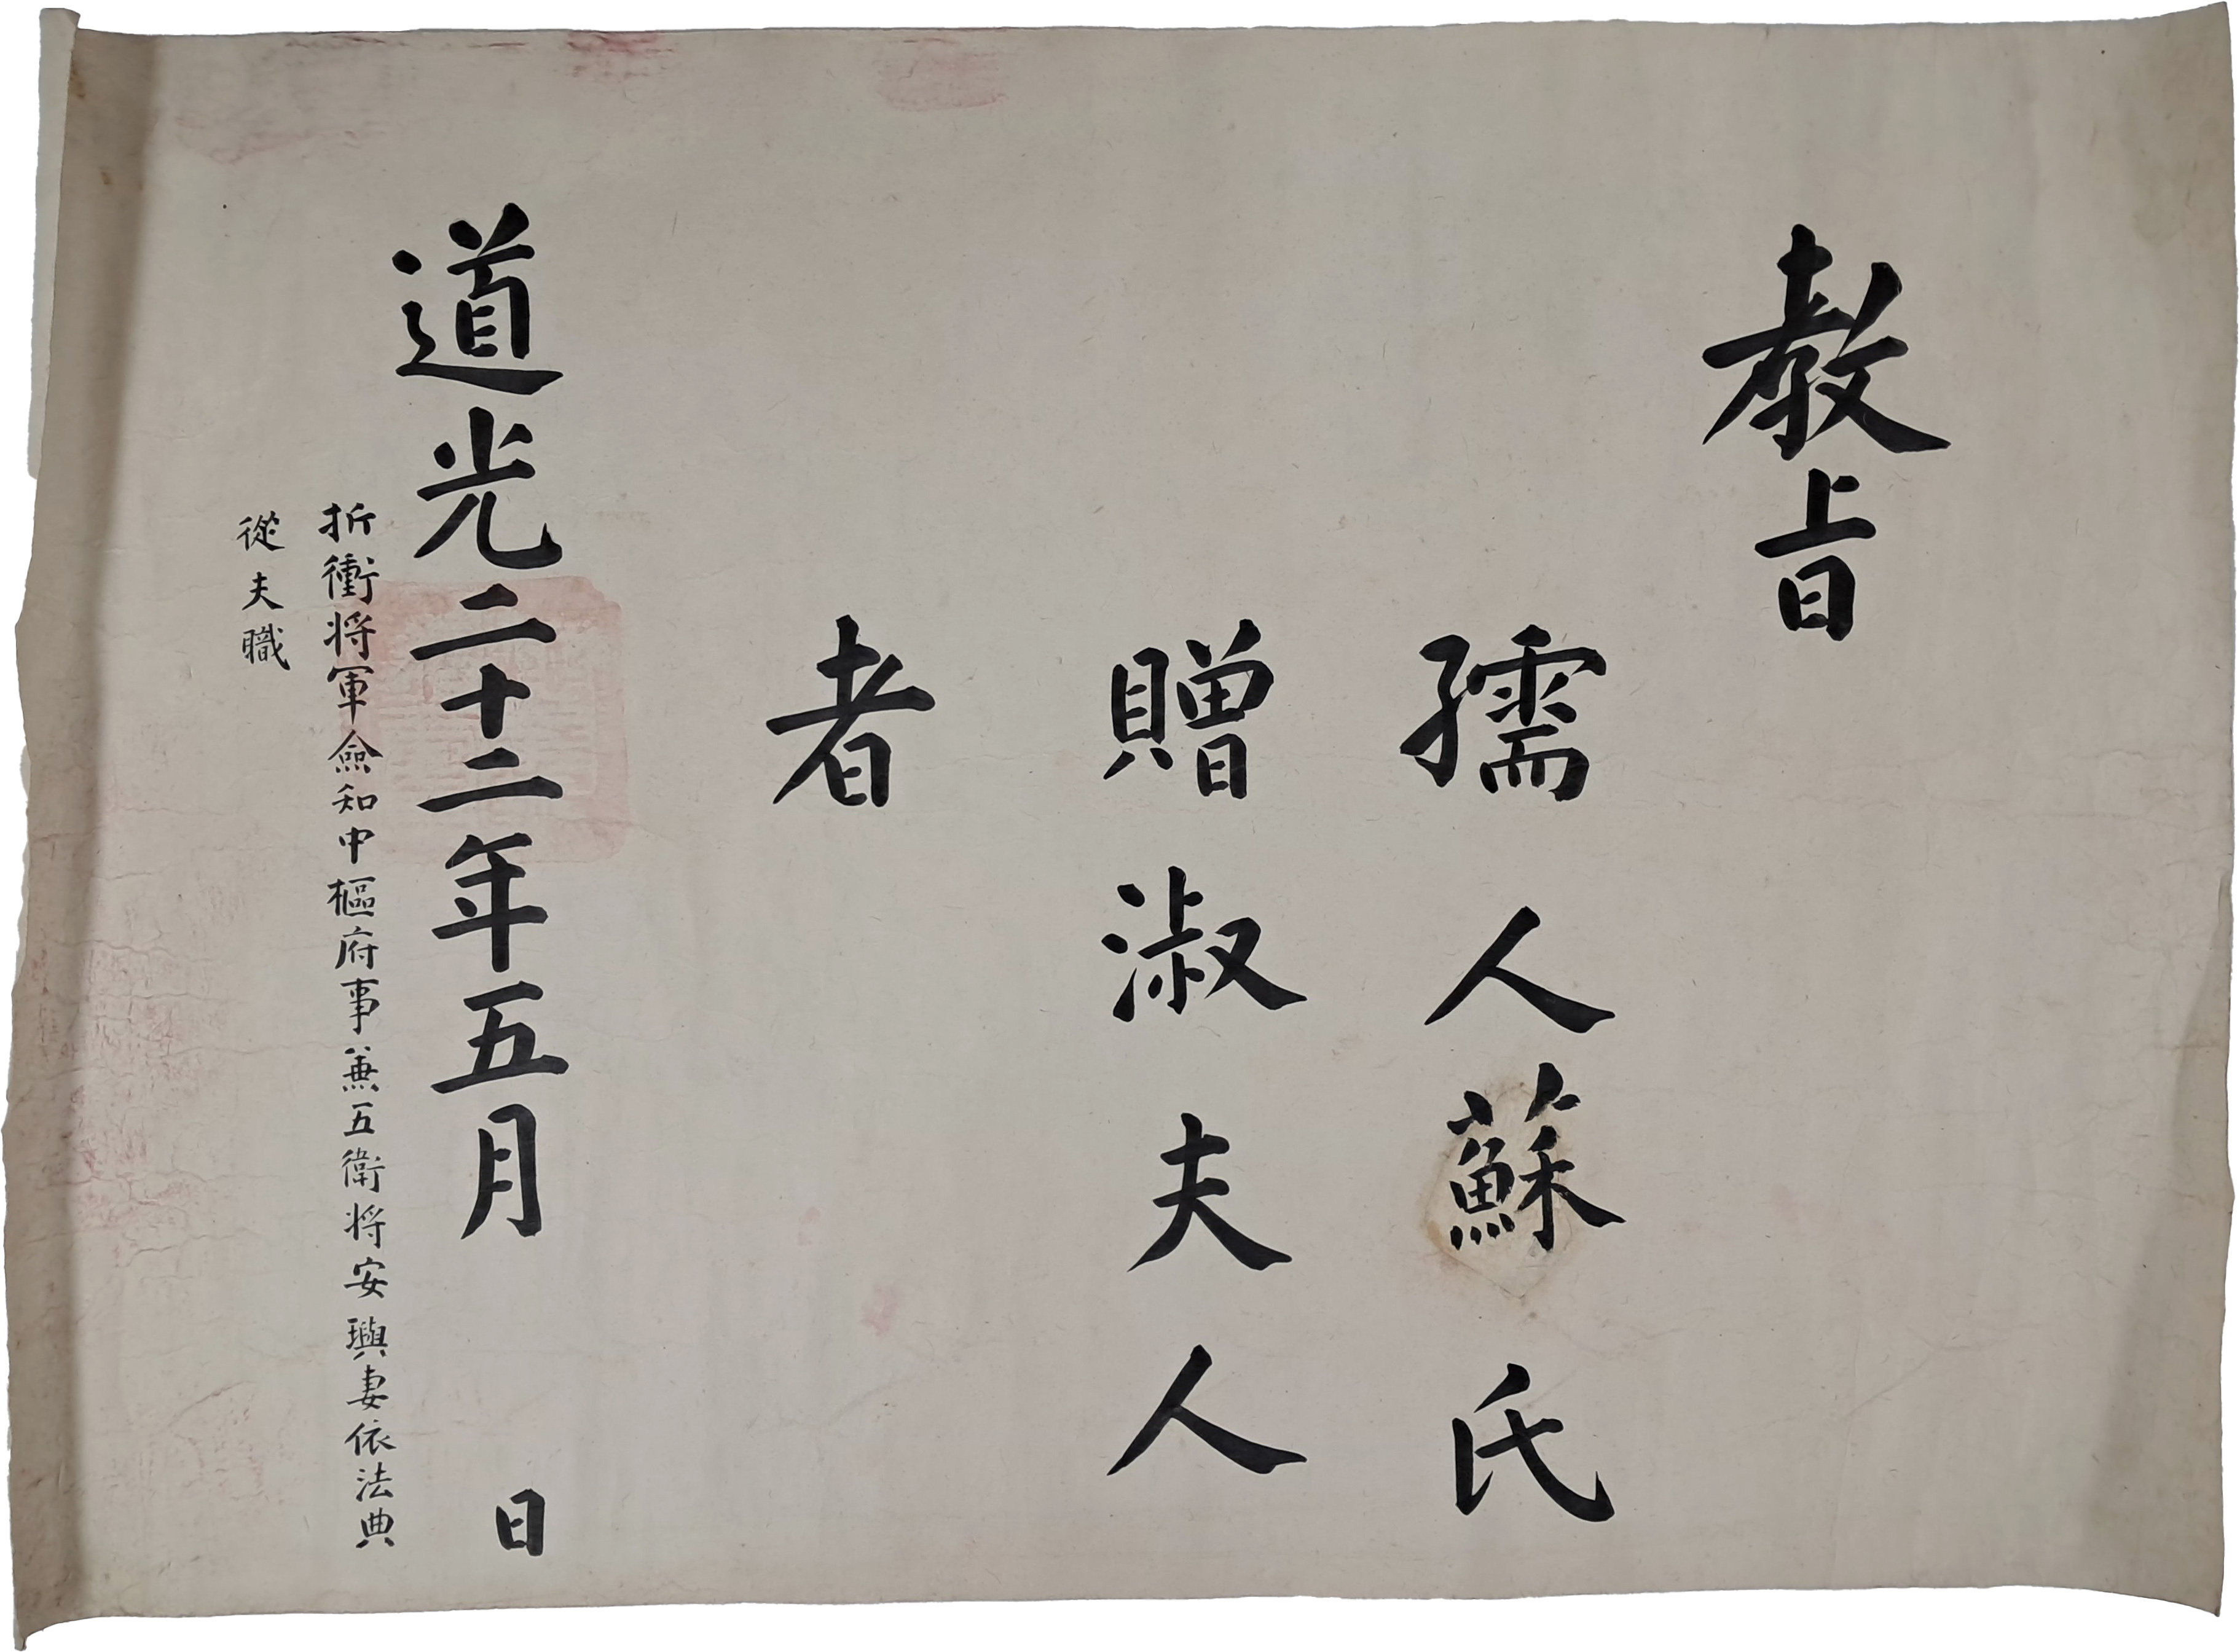 教旨
孺人蘇氏
贈淑夫人
者
道光二十二年五月 日
折衝将軍僉知中樞府事兼五衛将安璵妻依法典
從夫職